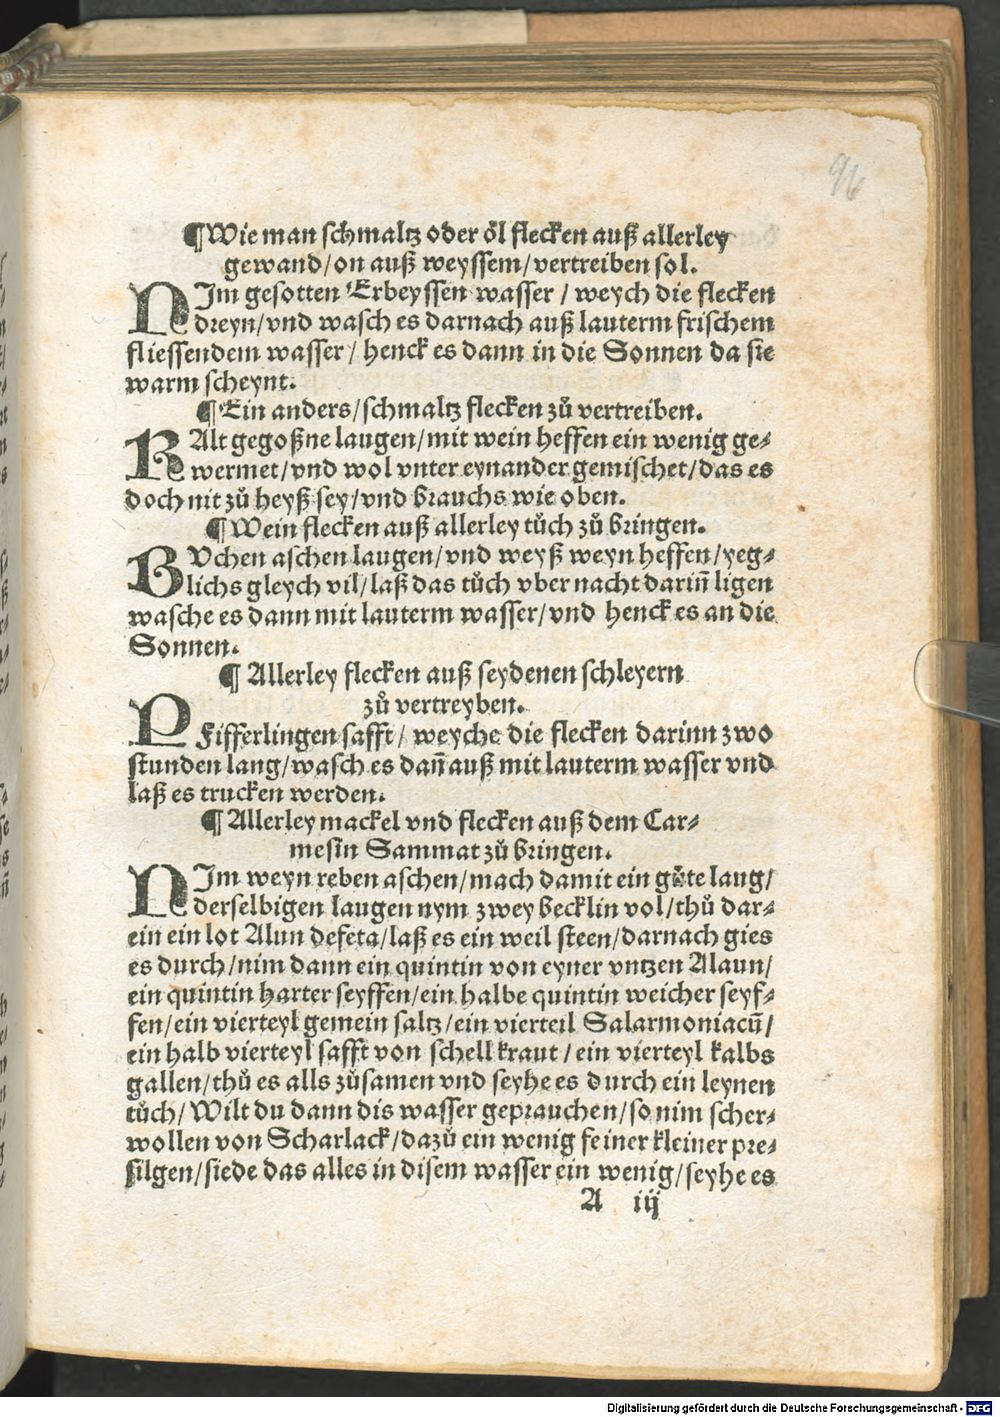 96
¶ Wie man schmaltz oder öl flecken auß allerley
gewand/on auß weyssem/vertreiben sol.
NIm gesotten Erbeyssen wasser / weych die flecken
dreyn/vnd wasch es darnach auß lauterm frischem
fliessendem wasser / henck es dann in die Sonnen da sie
warm scheynt.
¶ Ein anders/schmaltz flecken zů vertreiben.
KAlt gegoßne laugen/mit wein heffen ein wenig ge⸗
wermet/vnd wol vnter eynander gemischet/das es
doch nit zů heyß sey/vnd brauchs wie oben.
¶ Wein flecken auß allerley tůch zů bringen.
BVchen aschen laugen/vnd weyß weyn heffen/yeg⸗
lichs gleych vil/laß das tůch vber nacht dariñ ligen
wasche es dann mit lauterm wasser/vnd henck es an die
Sonnen.
¶ Allerley flecken auß seydenen schleyern
zů vertreyben.
PFifferlingen safft / weyche die flecken darinn zwo
stunden lang/wasch es dañ auß mit lauterm wasser vnd
laß es trucken werden.
¶ Allerley mackel vnd flecken auß dem Car⸗
mesin Sammat zů bringen.
NIm weyn reben aschen/mach damit ein gůte laug/
derselbigen laugen nym zwey becklin vol/thů dar⸗
ein ein lot Alun defeta/laß es ein weil steen/darnach gies
es durch/nim dann ein quintin von eyner vntzen Alaun/
ein quintin harter seyffen/ein halbe quintin weicher seyf⸗
fen/ein vierteyl gemein saltz/ein vierteil Salarmoniacũ/
ein halb vierteyl safft von schell kraut / ein vierteyl kalbs
gallen/thů es alls zůsamen vnd seyhe es durch ein leynen
tůch/Wilt du dann dis wasser geprauchen/so nim scher⸗
wollen von Scharlack/dazů ein wenig feiner kleiner pre⸗
silgen/siede das alles in disem wasser ein wenig/seyhe es
A iij
Digitalisierung gefördert durch die Deutsche Forschungsgemeinschaft - DFG